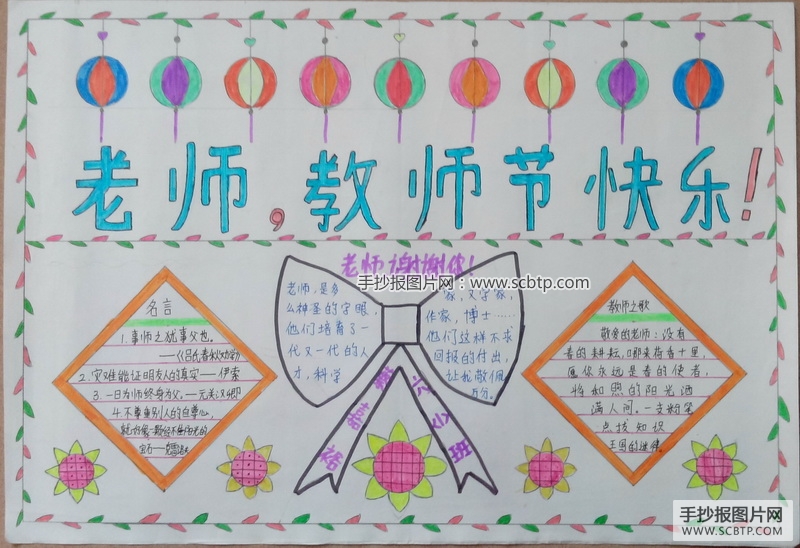 老师,教师节快乐!
老师谢谢你!
手抄报图片网 www.scbtp.com
名言
1.事师之犹事父也。
——《吕氏春秋·劝学》
2.灾难能证明友人的真实——伊索
3.一日为师终身为父。—元关汉卿
4.不尊重别人的自尊心,
就好像一颗经不住阳光的
宝石——
老师,是多
么神圣的字眼,
他们培育了一
代又一代的人
才,科学
家,文学家,
作家,博士……
他们这样不求
回报的付出,
让我敬佩
万分。
教师之歌
敬爱的老师:没有
春的耕耘,哪来荷香十里,
愿你永远是春的使者,
将和煦的阳光洒
满人间。一支粉笔
点拨知识
王国的迷津
六少班
语裕
手抄报图片网
WWW.SCBTP.COM